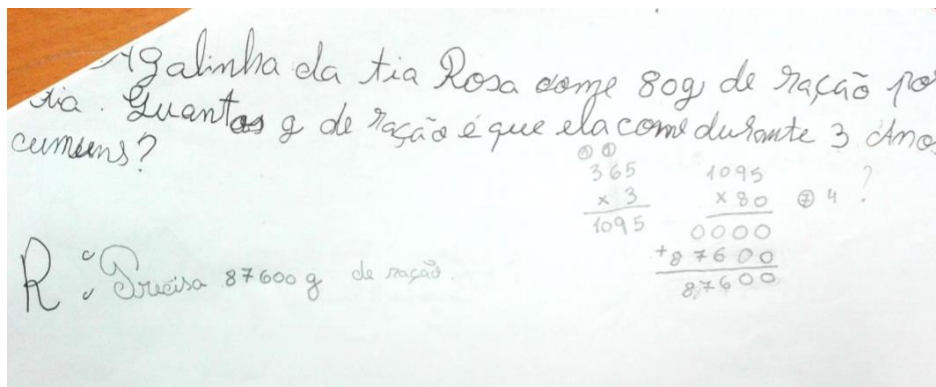 A galinha da tia Rosa come 80g de ração po
dia. Quantas g de ração é que ela come durante 3 Anos
cumuns?
① ①
365
x 3
1095
1095
x 80 ⑦ 4 ?
0000
+87600
87600
R: Precisa 87600 g de ração.